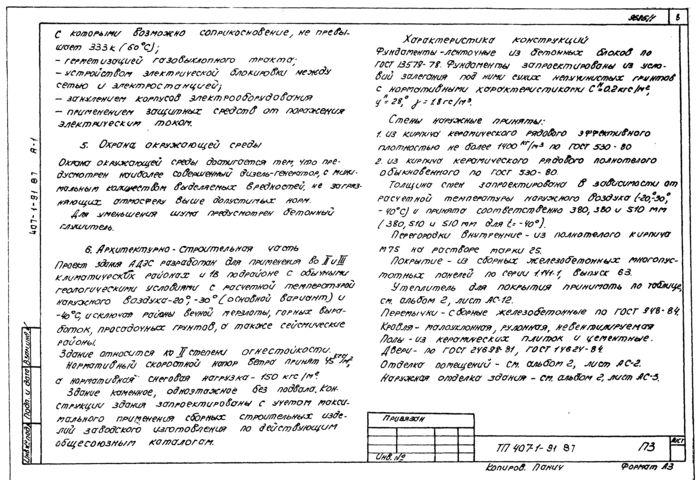 с которыми возможно соприкосновение, не превы-
шает 333к (60°С);
– герметизацией газовыхлопного тракта;
– устройством электрической блокировки между
сетью и электростанцией;
– занулением корпусов электрооборудования
– применением защитных средств от поражения
электрическим током.
5. Охрана окружающей среды
Охрана окружающей среды достигается тем, что пре-
дусмотрен наиболее совершенный дизель-генератор, с мини-
мальным количеством выделяемых вредностей, не загряз-
няющих атмосферу выше допустимых норм.
Для уменьшения шума предусмотрен бетонный
глушитель.
6. Архитектурно-строительная часть
Проект здания АДЭС разработан для применения во II и III
климатических районах и 1В подрайоне с обычными
геологическими условиями с расчетной температурой
наружного воздуха -20°, -30° (основной вариант) и
-40°С, исключая районы вечной мерзлоты, горных выра-
боток, просадочных грунтов, а также сейсмические
районы.
Здание относится ко II степени огнестойкости.
Нормативный скоростной напор ветра принят 45 кгс/м²,
а нормативная снеговая нагрузка - 150 кгс/м².
Здание каменное, одноэтажное без подвала. Кон-
струкции здания запроектированы с учетом макси-
мального применения сборных строительных изде-
лий заводского изготовления по действующим
общесоюзным каталогам.
8
Характеристика конструкций
Фундаменты - ленточные из бетонных блоков по
ГОСТ 13579-78. Фундаменты запроектированы из усло-
вий залегания под ними сухих непучинистых грунтов
с нормативными характеристиками Сн=0.2 кгс/м²,
φн=28°, γ=1.8 тс/м³.
Стены наружные приняты:
1. из кирпича керамического рядового эффективного
плотностью не более 1400 кг/м³ по ГОСТ 530-80
2. из кирпича керамического рядового полнотелого
обыкновенного по ГОСТ 530-80.
Толщина стен запроектирована в зависимости от
расчетной температуры наружного воздуха (-20°, -30°,
-40°С) и принята соответственно 380, 380 и 510 мм
(380, 510 и 510 мм для t=-40°).
Перегородки внутренние - из полнотелого кирпича
М75 на растворе марки 25.
Покрытие - из сборных железобетонных многопус-
тотных панелей по серии 1.141-1, выпуск 63.
Утеплитель для покрытия принимать по таблице,
см. альбом 2, лист АС-12.
Перемычки - сборные железобетонные по ГОСТ 948-84.
Кровля - малоуклонная, рулонная, невентилируемая
Полы - из керамических плиток и цементные.
Двери - по ГОСТ 24698-81, ГОСТ 14624-84.
Отделка помещений - см. альбом 2, лист АС-2.
Наружная отделка здания - см. альбом 2, лист АС-3.
407-1-91 87 А-1
Инв.№подл. Подп. и дата Взам.инв.№
Привязан
Инв. №
ТП 407-1-91 87
ПЗ
Лист
Копиров. Панич
Формат А3